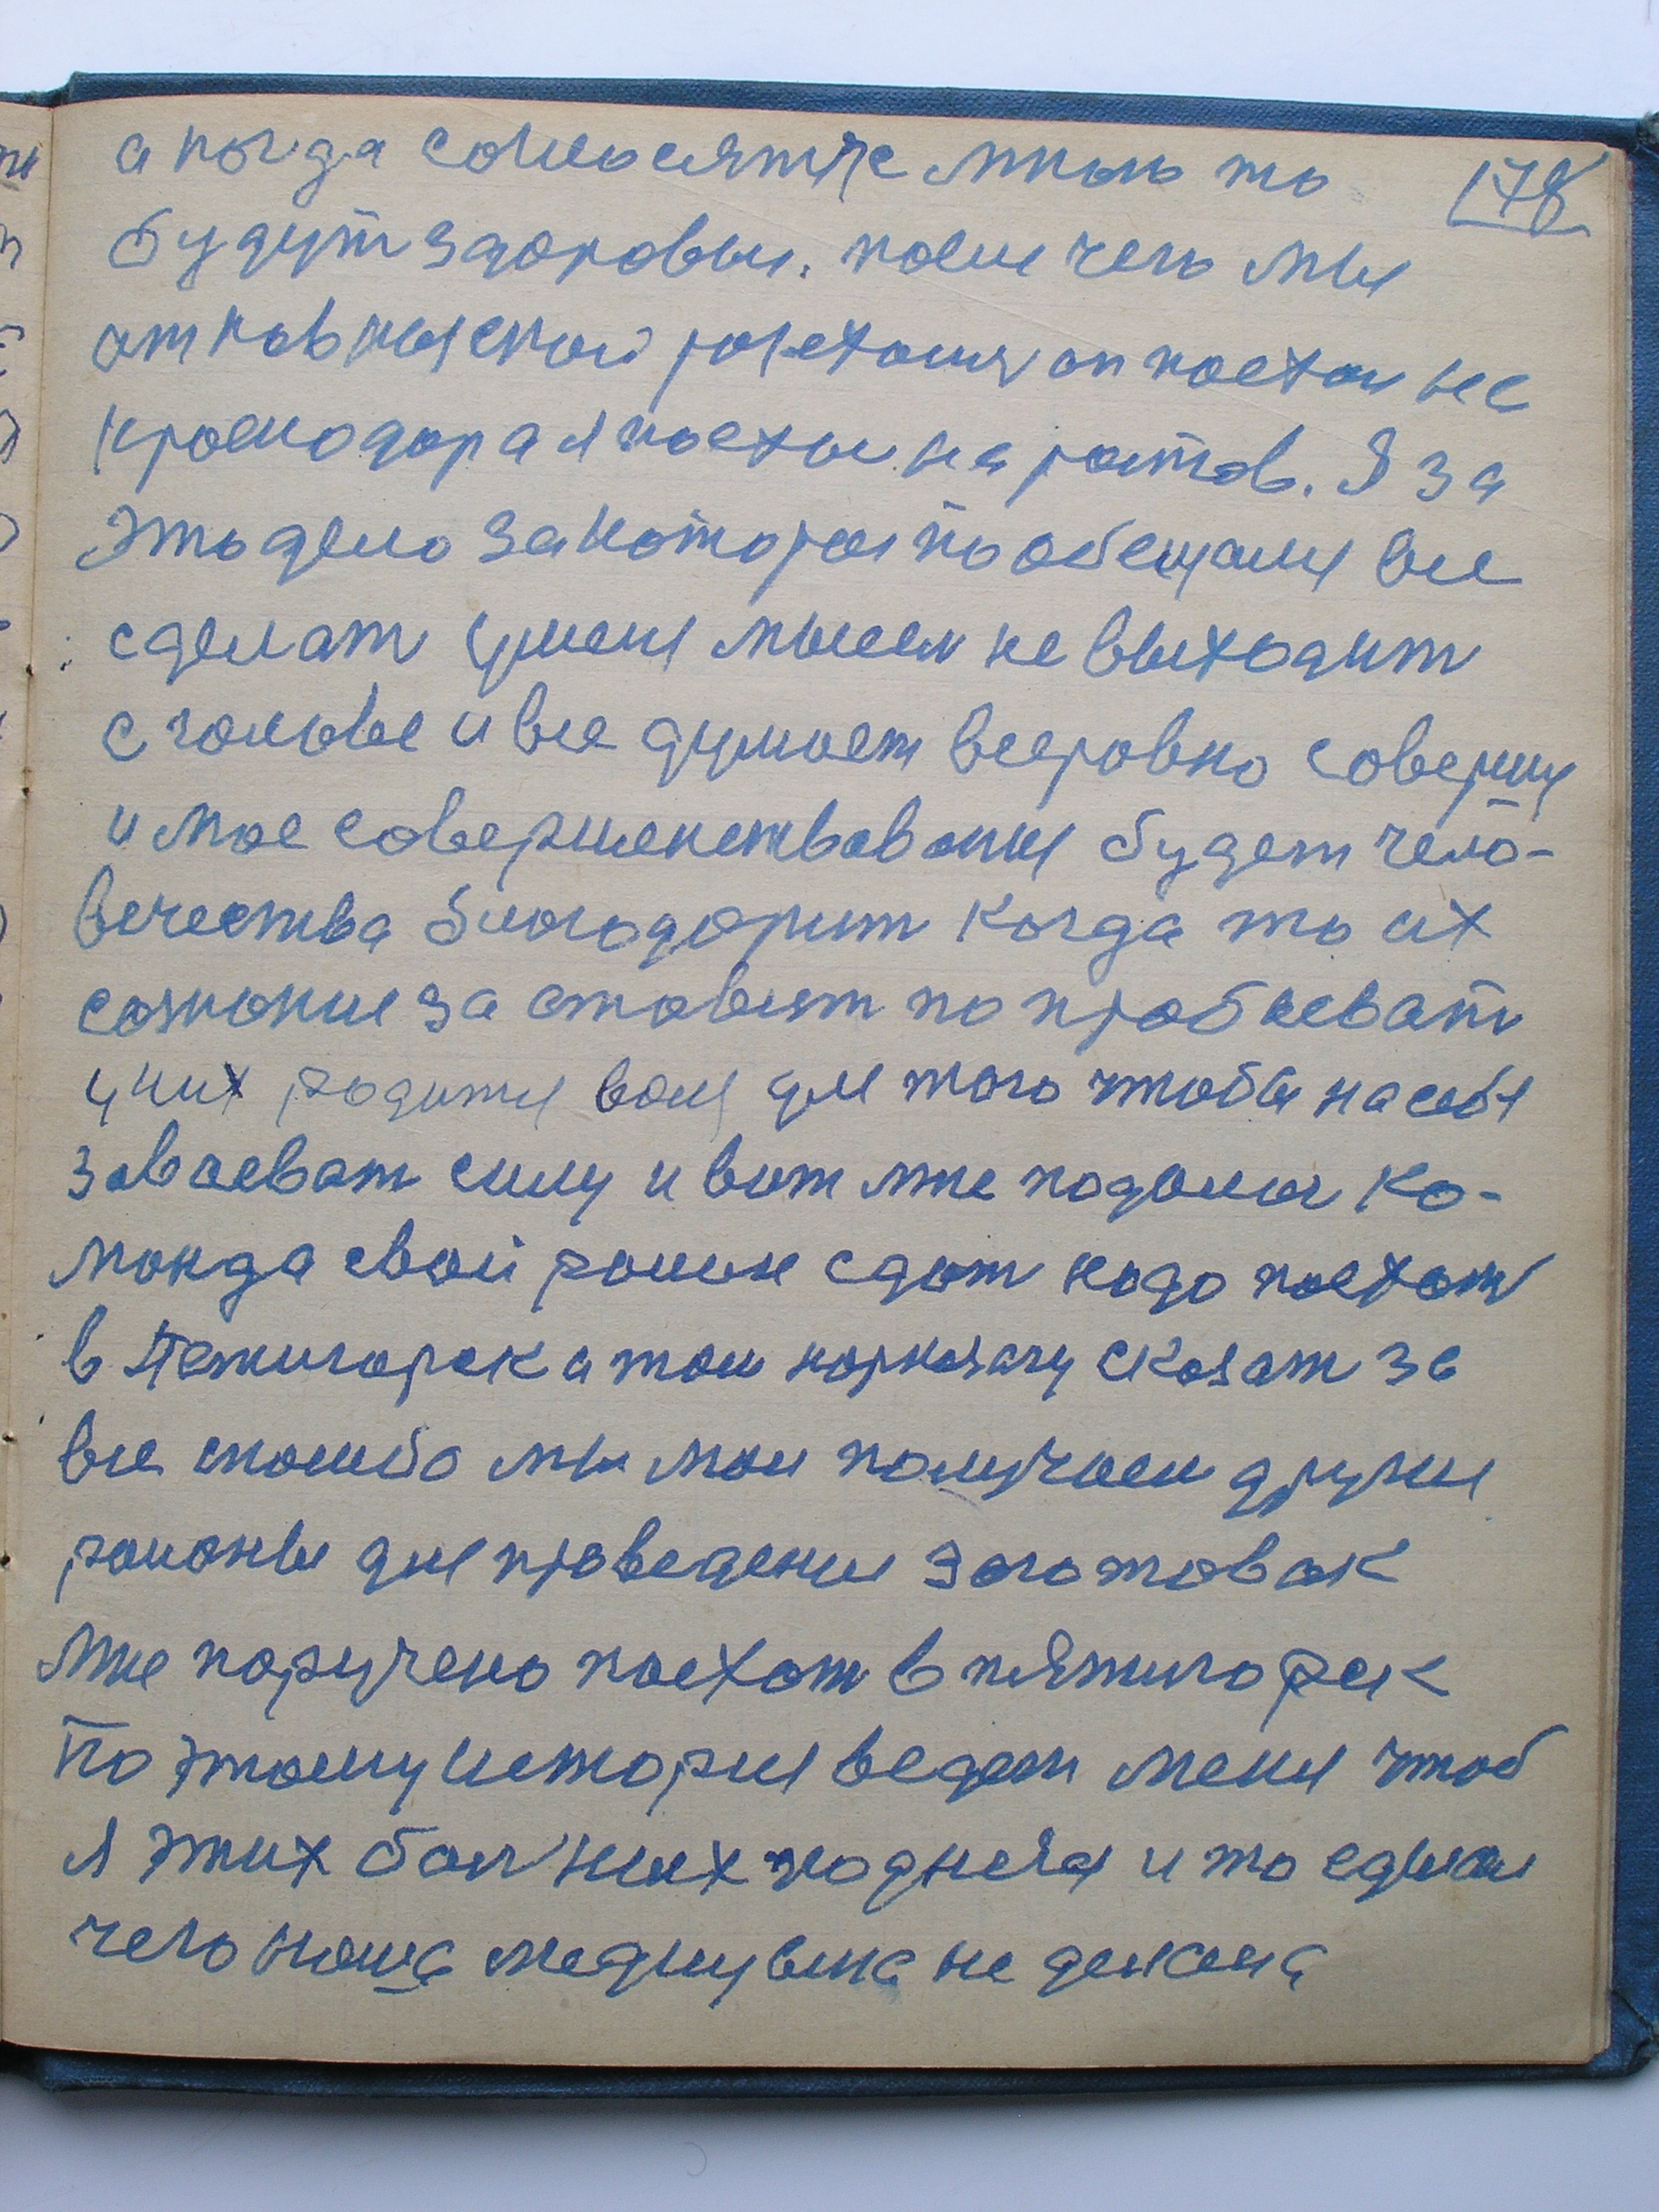 178
а когда согласятся мною то
будут здоровы. после чего мы
от кавказской розехались он поехал не
краснодар а я поехал на ростов. Я за
это дело за которое пообещали все
сделат у меня мысел не выходит
с головы и все думает всеровно совершу
и мое совершенствования будет чело-
вечества благодарит когда то их
сознание заставит по пробоеват
у них родится воля для того чтоба на себя
завоеват силу и вот мне подалас ко-
манда свой район сдат надо поехат
в Петигорск а там нарказачу сказат за
все спасибо мы мол получаем други
районы для проведения заготовак
мне поручено поехат в пятигорск
По этому история ведет меня чтоб
я этих болных поднял и то сделал
чего наша медицина не делала